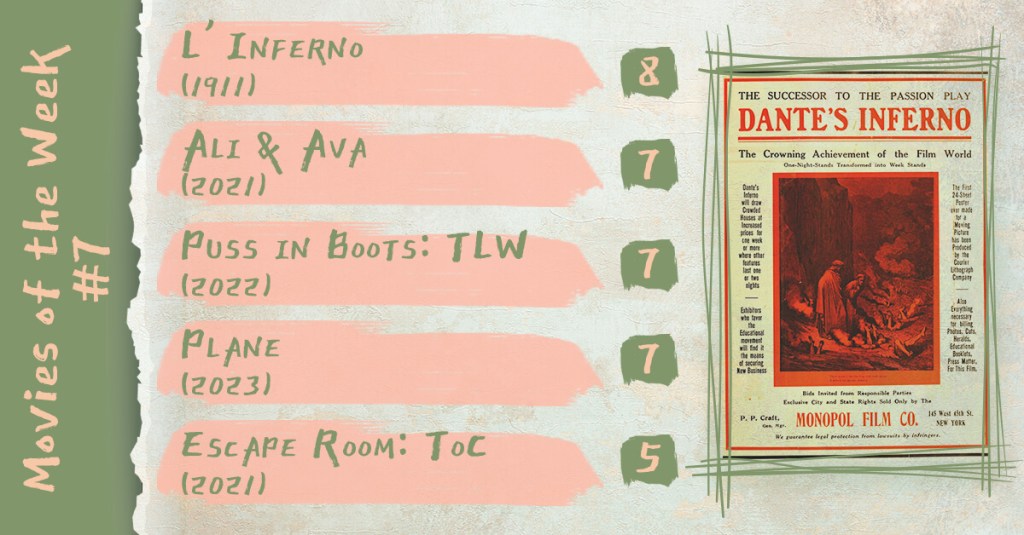 Movies of the Week
#7
L' Inferno
(1911)
8
Ali & Ava
(2021)
7
Puss in Boots: TLW
(2022)
7
Plane
(2023)
7
Escape Room: ToC
(2021)
5
THE SUCCESSOR TO THE PASSION PLAY
DANTE'S INFERNO
The Crowning Achievement of the Film World
One-Night-Stands Transformed into Week Stands
Dante's
Inferno
will draw
Crowded
Houses at
Increased
prices for
one week
or more
where other
features
last one
or two
nights
Exhibitors
who favor
the
Educational
movement
will find it
the means
of securing
New Business
The First
24-Sheet
Poster
ever made
for a
Moving
Picture
has been
Produced
by the
Courier
Lithograph
Company
Also
Everything
necessary
for billing
Photos, Cuts,
Heralds,
Educational
Booklets,
Press Matter,
For This Film.
Bids Invited from Responsible Parties
Exclusive City and State Rights Sold Only by The
P. P. Craft,
Gen. Mgr.
MONOPOL FILM CO.
145 West 45th St.
NEW YORK
We guarantee legal protection from lawsuits by infringers.